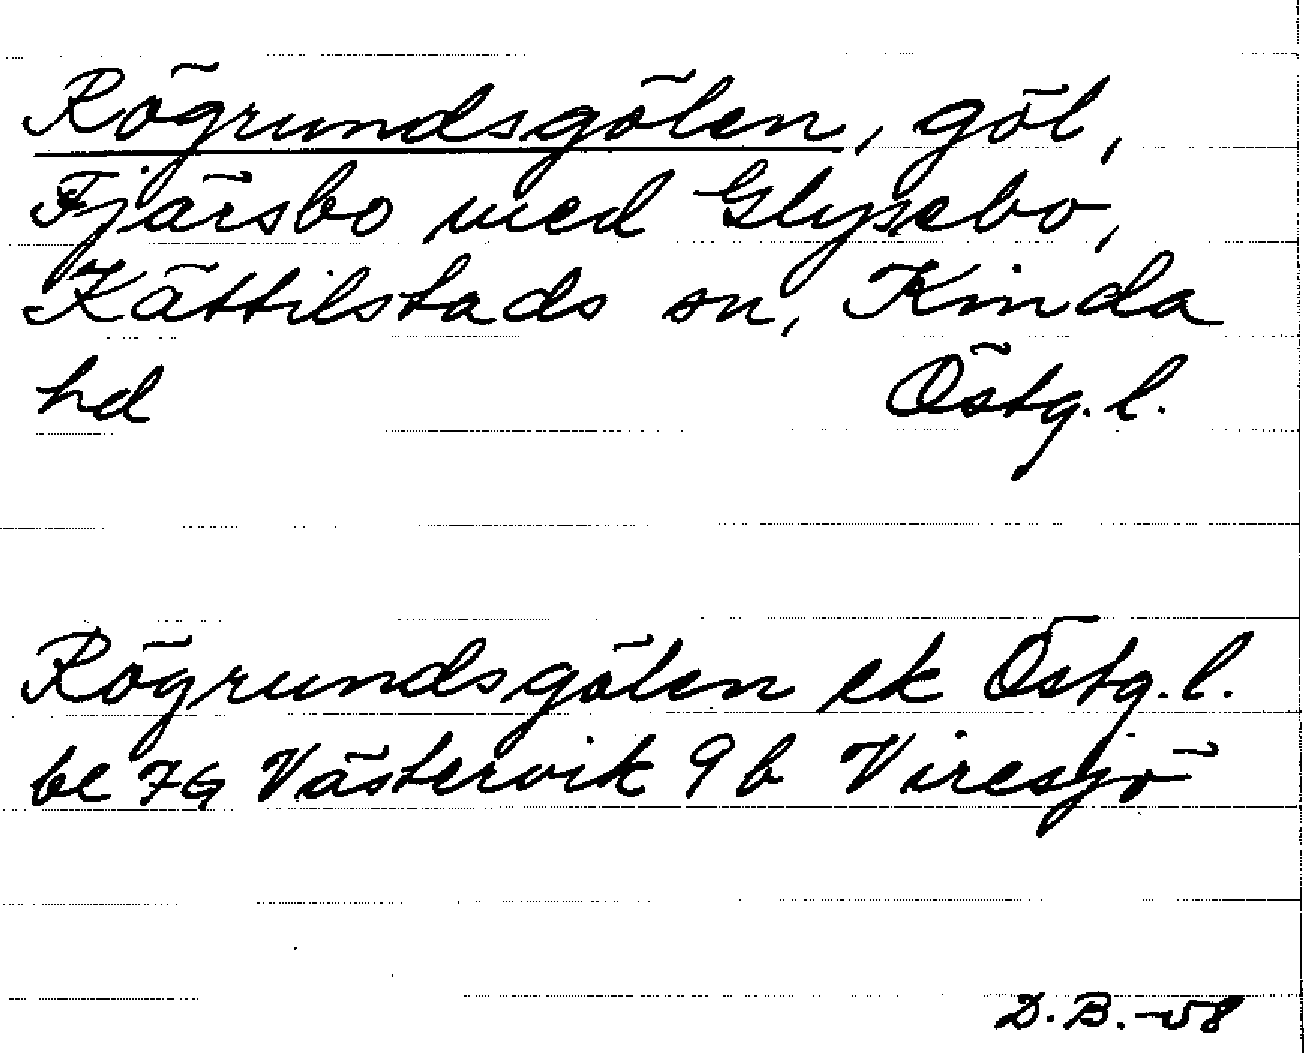 Rögrundsgölen, göl,
Fjärsbo med Glypebo,
Kättilstads sn, Kinda
hd Östg. l.
Rögrundsgölen ek Östg. l.
be 7G Västervik 9 b Viresjö
D. B. -58